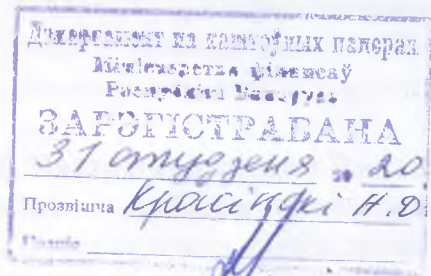 Дэпартамент па каштоўных паперах
Міністэрства фінансаў
Рэспублікі Беларусь
ЗАРЭГІСТРАВАНА
31 студзеня 20
Прозвішча Н.